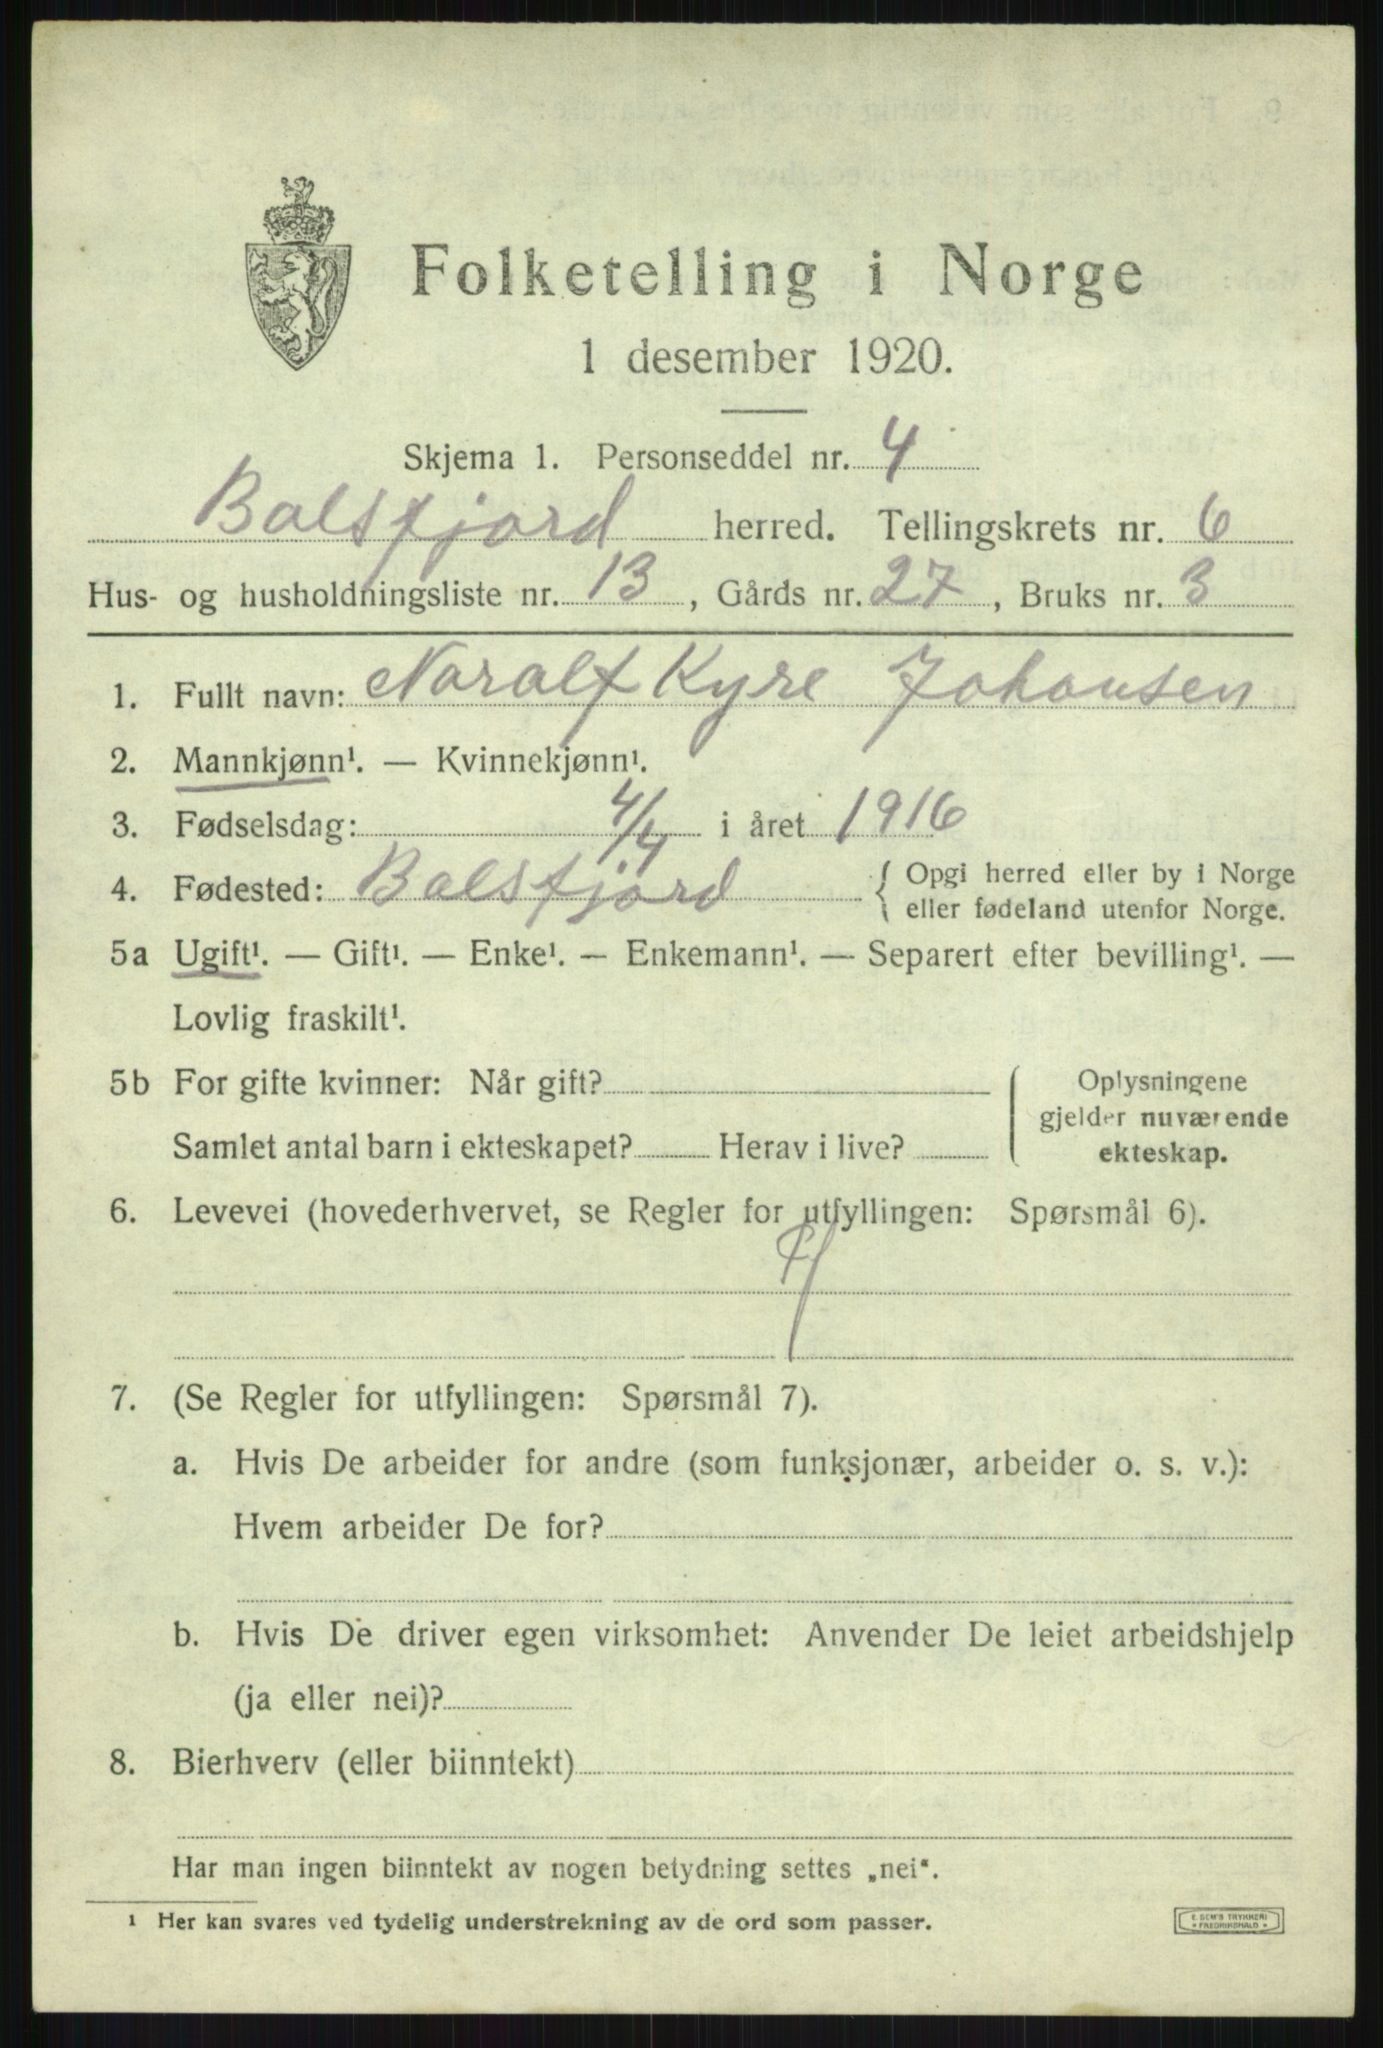 Folketelling i Norge
1 desember 1920.
Skjema 1. Personseddel nr. 4
Balsfjord herred. Tellingskrets nr. 6
Hus- og husholdningsliste nr. 13, Gårds nr. 27, Bruks nr. 3
1. Fullt navn: Noralf Kyre Johansen
2. Mannkjønn¹. — Kvinnekjønn¹.
3. Fødselsdag: 4/4 i året 1916
4. Fødested: Balsfjord { Opgi herred eller by i Norge
eller fødeland utenfor Norge.
5a Ugift¹. — Gift¹. — Enke¹. — Enkemann¹. — Separert efter bevilling¹. —
Lovlig fraskilt¹.
5b For gifte kvinner: Når gift? ( Oplysningene
gjelder nuværende
Samlet antal barn i ekteskapet? Herav i live? ekteskap.
6. Levevei (hovederhvervet, se Regler for utfyllingen: Spørsmål 6).
7. (Se Regler for utfyllingen: Spørsmål 7).
a. Hvis De arbeider for andre (som funksjonær, arbeider o. s. v.):
Hvem arbeider De for?
b. Hvis De driver egen virksomhet: Anvender De leiet arbeidshjelp
(ja eller nei)?
8. Bierhverv (eller biinntekt)
Har man ingen biinntekt av nogen betydning settes „nei“.
¹ Her kan svares ved tydelig understrekning av de ord som passer.
E. SEM'S TRYKKERI
* FREDRIKSHALD *